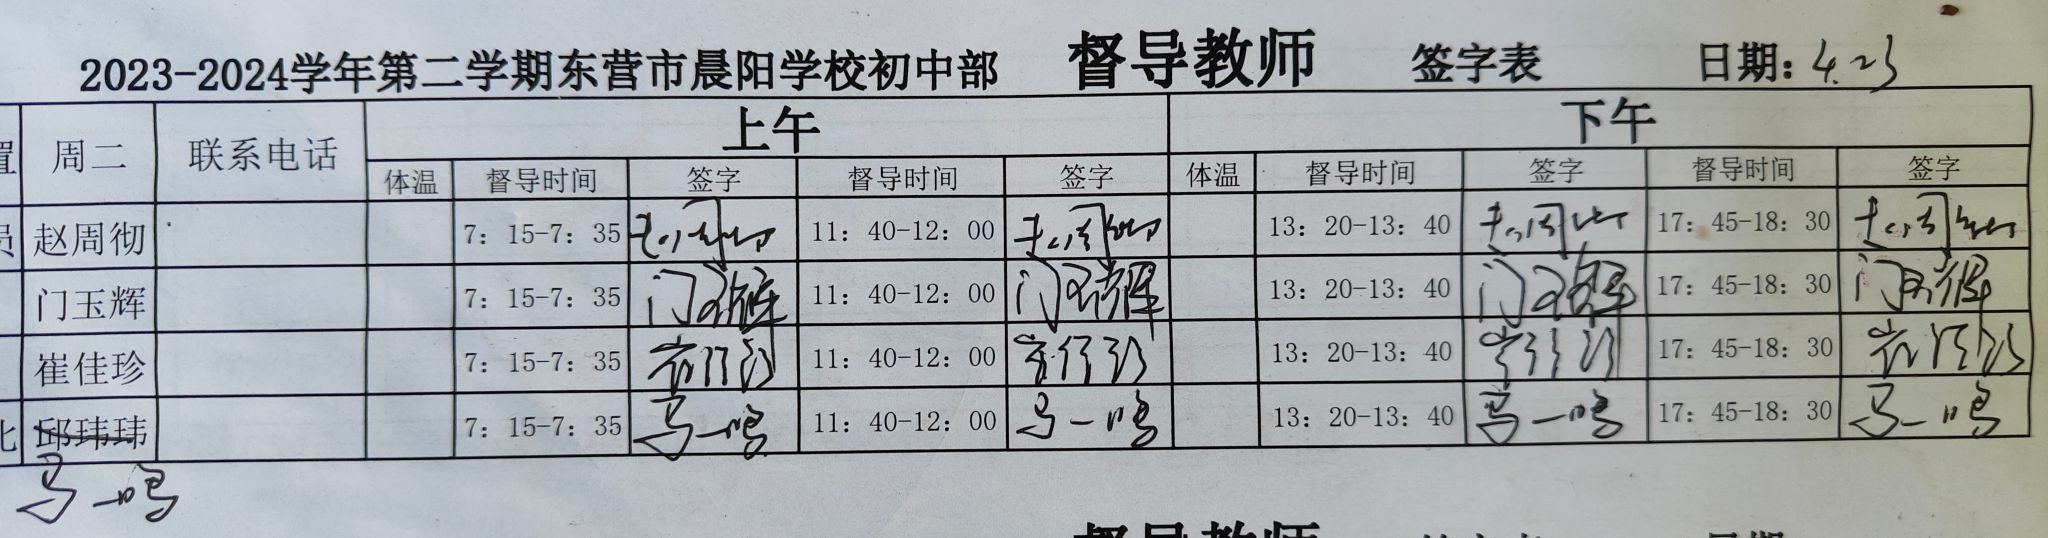 2023-2024学年第二学期东营市晨阳学校初中部 督导教师 签字表 日期：4.23
置 周二 联系电话 上午 下午
体温 督导时间 签字 督导时间 签字 体温 督导时间 签字 督导时间 签字
员 赵周彻 7：15-7：35 赵周彻 11：40-12：00 赵周彻 13：20-13：40 赵周彻 17：45-18：30 赵周彻
门玉辉 7：15-7：35 门玉辉 11：40-12：00 门玉辉 13：20-13：40 门玉辉 17：45-18：30 门玉辉
崔佳珍 7：15-7：35 崔佳珍 11：40-12：00 崔佳珍 13：20-13：40 崔佳珍 17：45-18：30 崔佳珍
北 邱玮玮 7：15-7：35 马一鸣 11：40-12：00 马一鸣 13：20-13：40 马一鸣 17：45-18：30 马一鸣
马一鸣
督导教师 签字表 日期